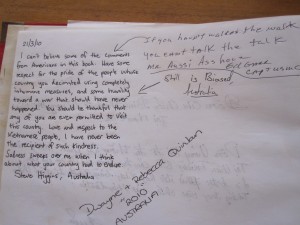 21/3/10
I can't believe some of the comments
from Americans in this book. Have some
respect for the pride of the people whose
country you decimated using completely
inhumane measures, and some humility
toward a war that should have never
happened. You should be thankful that
any of you are even permitted to visit
this country. Love and respect to the
Vietnamese people, I have never been
the recipient of such kindness.
Sadness sweeps over me when I think
about what your country had to endure
Steve Higgins, Australia
you can't talk the talk
Mr Aussi Asshole
Still is Poisoned
Dwayne & Rebecca Quinlan
"2010"
AUSTRALIA